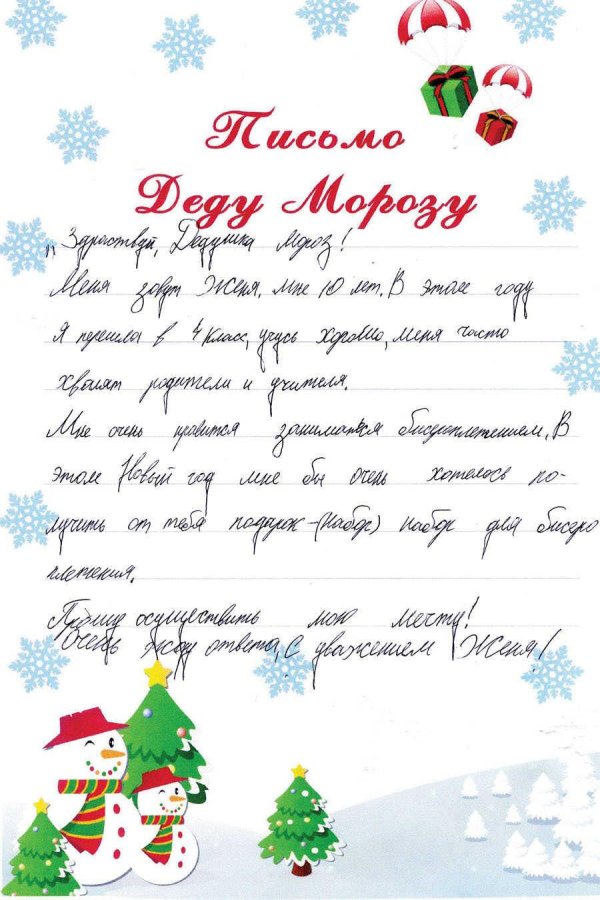 Письмо
Деду Морозу
„ Здраствуй, Дедушка Мороз!
Меня зовут Женя. Мне 10 лет. В этом году
я перешла в 4 класс, учусь хорошо, меня часто
хвалят родители и учителя.
Мне очень нравится заниматься бисероплетением. В
этом Новый год мне бы очень хотелось по-
лучить от тебя подарок - (набор) набор для бисеро
плетения.
Прошу осуществить мою мечту!
Очень жду ответа, с уважением Женя!